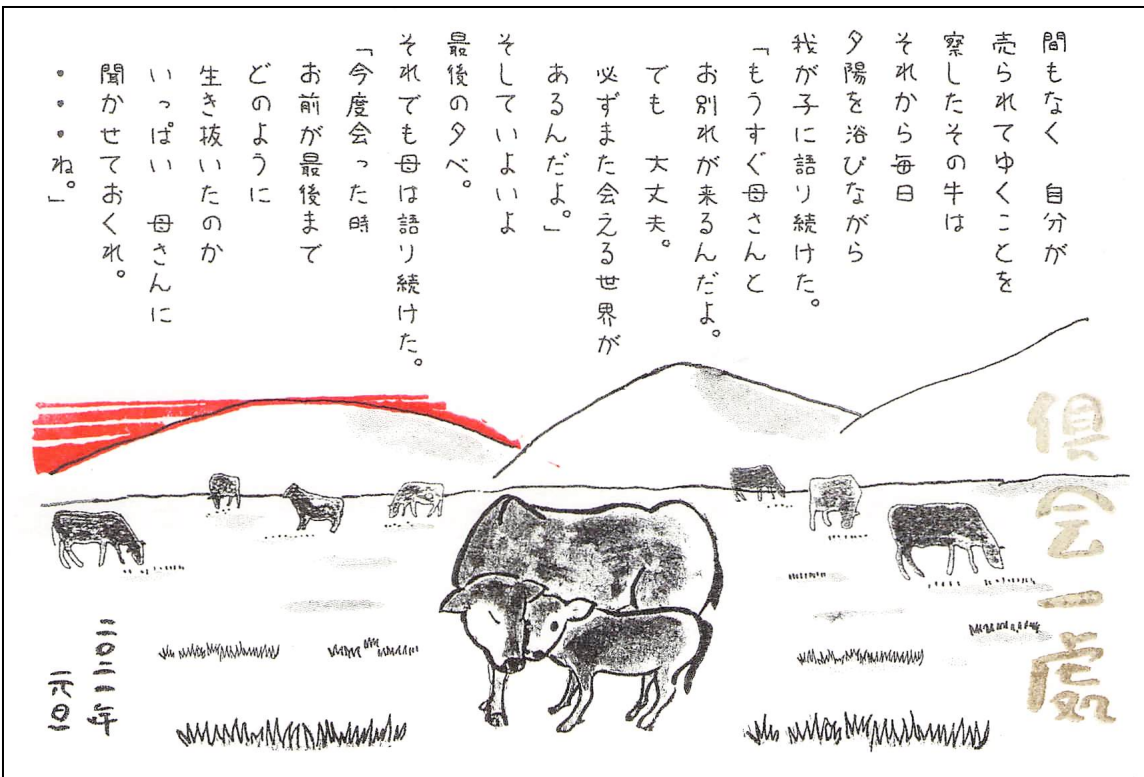 間もなく　自分が
売られてゆくことを
察したその牛は
それから毎日
夕陽を浴びながら
我が子に語り続けた。
「もうすぐ母さんと
お別れが来るんだよ。
でも　大丈夫。
必ずまた会える世界が
あるんだよ。」
そしていよいよ
最後の夕べ。
それでも母は語り続けた。
「今度会った時
お前が最後まで
どのように
生き抜いたのか
いっぱい　母さんに
聞かせておくれ。
・・・・ね。」
倶会一處
二〇二一年